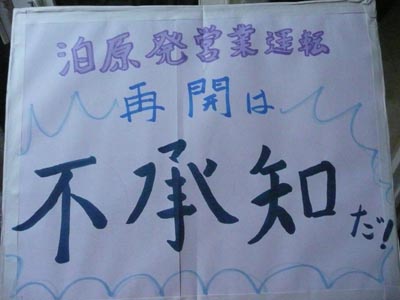 泊原発営業運転
再開は
不承知だ!